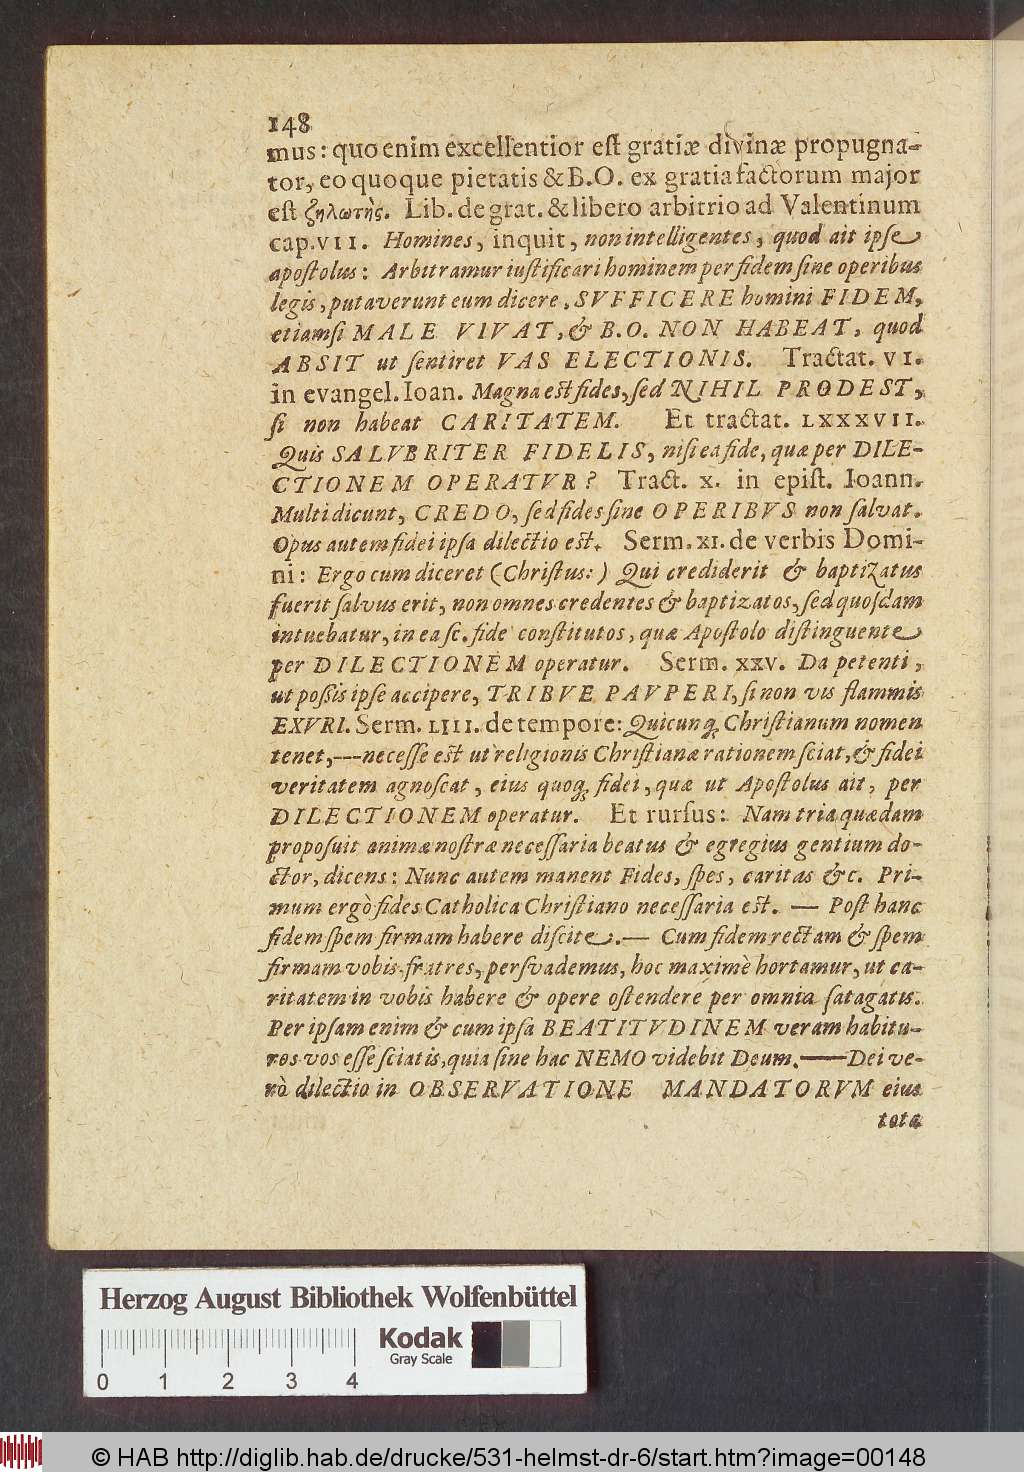 148
mus: quo enim excellentior est gratiæ divinæ propugna-
tor, eo quoque pietatis & B.O. ex gratia factorum major
est ζηλωτὴς. Lib. de grat. & libero arbitrio ad Valentinum
cap. VII. Homines, inquit, non intelligentes, quod ait ipse
apostolus: Arbitramur iustificari hominem per fidem sine operibus
legis, putaverunt eum dicere, SVFFICERE homini FIDEM,
etiamsi MALE VIVAT, & B.O. NON HABEAT, quod
ABSIT ut sentiret VAS ELECTIONIS. Tractat. VI.
in evangel. Ioan. Magna est fides, sed NIHIL PRODEST,
si non habeat CARITATEM. Et tractat. LXXXVII.
Quis SALVBRITER FIDELIS, nisi ea fide, quæ per DILE-
CTIONEM OPERATVR? Tract. X. in epist. Ioann.
Multi dicunt, CREDO, sed fides sine OPERIBVS non salvat.
Opus autem fidei ipsa dilectio est. Serm. XI. de verbis Domi-
ni: Ergo cum diceret (Christus:) Qui crediderit & baptizatus
fuerit salvus erit, non omnes credentes & baptizatos, sed quosdam
intuebatur, in ea sc. fide constitutos, quæ Apostolo distinguente
per DILECTIONEM operatur. Serm. XXV. Da petenti,
ut possis ipse accipere, TRIBVE PAVPERI, si non vis flammis
EXVRI. Serm. LIII. de tempore: Quicunq; Christianum nomen
tenet,---necesse est ut religionis Christianæ rationem sciat, & fidei
veritatem agnoscat, eius quoq; fidei, quæ ut Apostolus ait, per
DILECTIONEM operatur. Et rursus: Nam tria quædam
proposuit animæ nostræ necessaria beatus & egregius gentium do-
ctor, dicens: Nunc autem manent Fides, spes, caritas &c. Pri-
mum ergò fides Catholica Christiano necessaria est. — Post hanc
fidem spem firmam habere discite.— Cum fidem rectam & spem
firmam vobis fratres, persvademus, hoc maximè hortamur, ut ca-
ritatem in vobis habere & opere ostendere per omnia satagatis.
Per ipsam enim & cum ipsa BEATITVDINEM veram habitu-
ros vos esse sciatis, quia sine hac NEMO videbit Deum.——Dei ve-
rò dilectio in OBSERVATIONE MANDATORVM eius
tota
Herzog August Bibliothek Wolfenbüttel
Kodak
Gray Scale
0 1 2 3 4
© HAB http://diglib.hab.de/drucke/531-helmst-dr-6/start.htm?image=00148